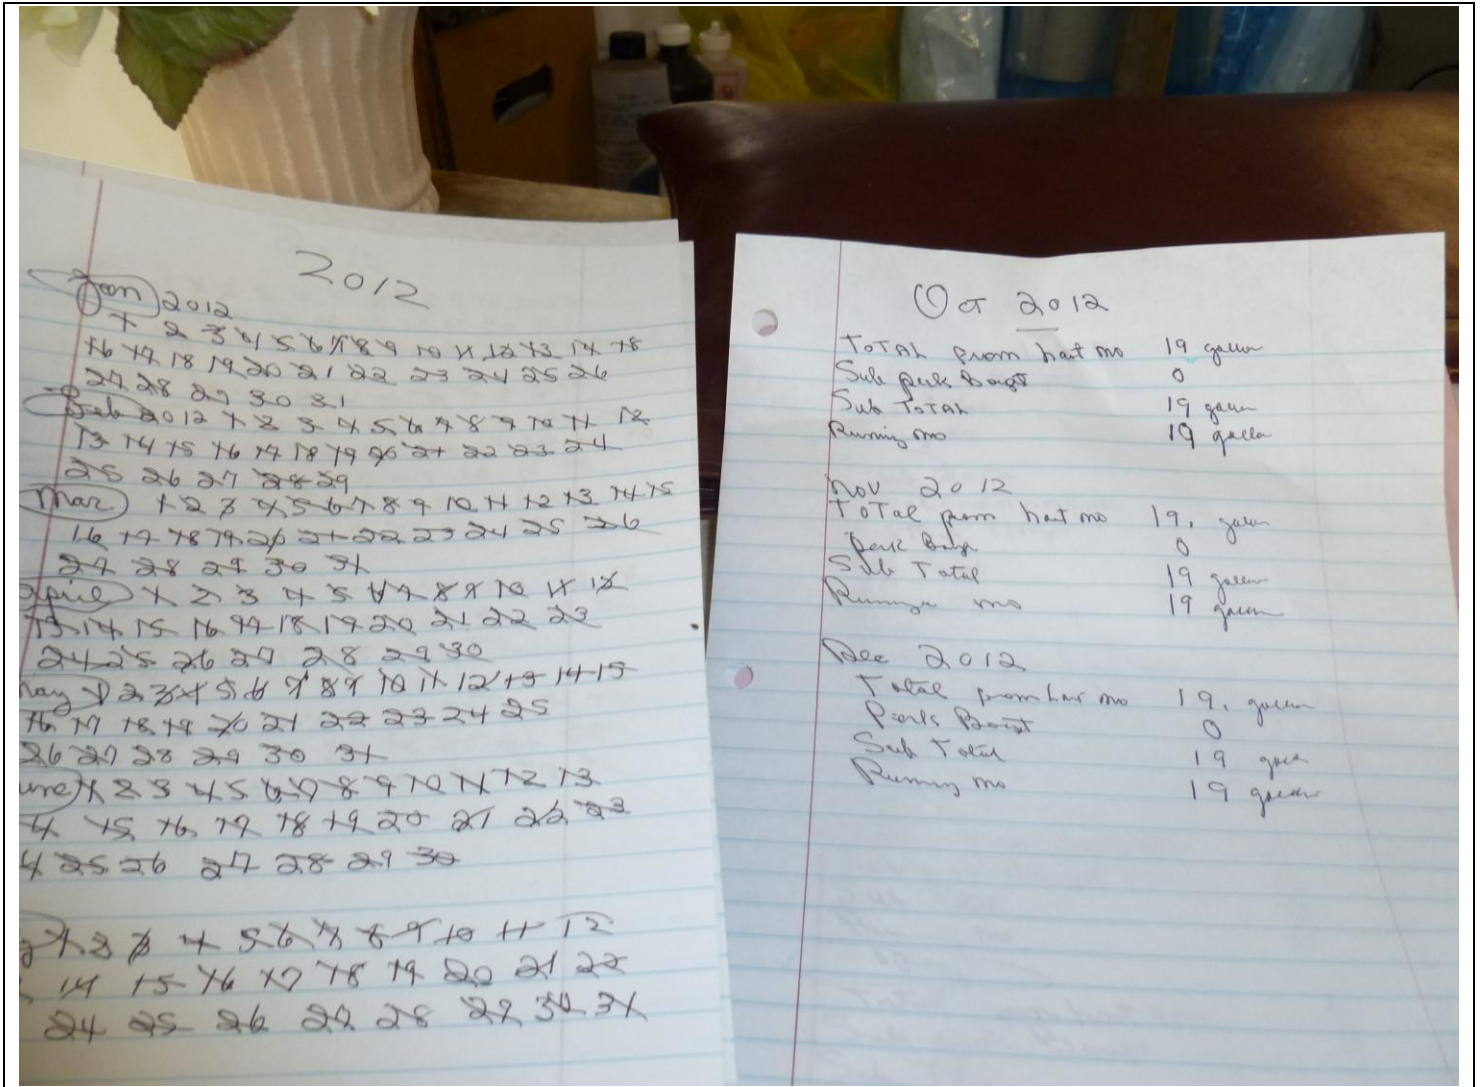 2012
Jan 2012
1 2 3 4 5 6 7 8 9 10 11 12 13 14 15
16 17 18 19 20 21 22 23 24 25 26
27 28 29 30 31
Feb 2012 1 2 3 4 5 6 7 8 9 10 11 12
13 14 15 16 17 18 19 20 21 22 23 24
25 26 27 28 29
Mar 1 2 3 4 5 6 7 8 9 10 11 12 13 14 15
16 17 18 19 20 21 22 23 24 25 26
27 28 29 30 31
April 1 2 3 4 5 6 7 8 9 10 11 12
13 14 15 16 17 18 19 20 21 22 23
24 25 26 27 28 29 30
May 1 2 3 4 5 6 7 8 9 10 11 12 13 14 15
16 17 18 19 20 21 22 23 24 25
26 27 28 29 30 31
une 1 2 3 4 5 6 7 8 9 10 11 12 13
4 15 16 17 18 19 20 21 22 23
4 25 26 27 28 29 30
1 2 3 4 5 6 7 8 9 10 11 12
14 15 16 17 18 19 20 21 22
24 25 26 27 28 29 30 31
Oct 2012
TOTAL from last mo 19 gallon
Sub 0
Sub TOTAL 19 gallon
Running mo 19 gallon
Nov 2012
TOTAL from last mo 19. gallon
0
Sub Total 19 gallon
Running mo 19 gallon
Dec 2012
Total from last mo 19. gallon
0
Sub Total 19 gallon
Running mo 19 gallon